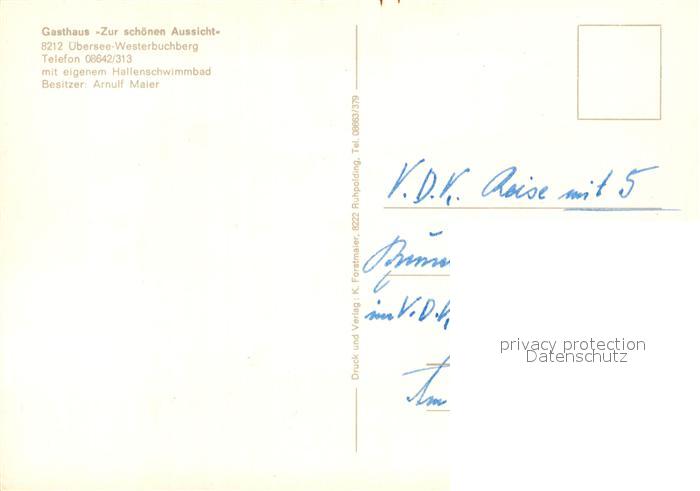 Gasthaus »Zur schönen Aussicht«
8212 Übersee-Westerbuchberg
Telefon 08642/313
mit eigenem Hallenschwimmbad
Besitzer: Arnulf Maier
Druck und Verlag: K. Forstmaier, 8222 Ruhpolding, Tel. 08663/379
V.D.V. Reise mit 5
im V.D.V.
Am
privacy protection
Datenschutz